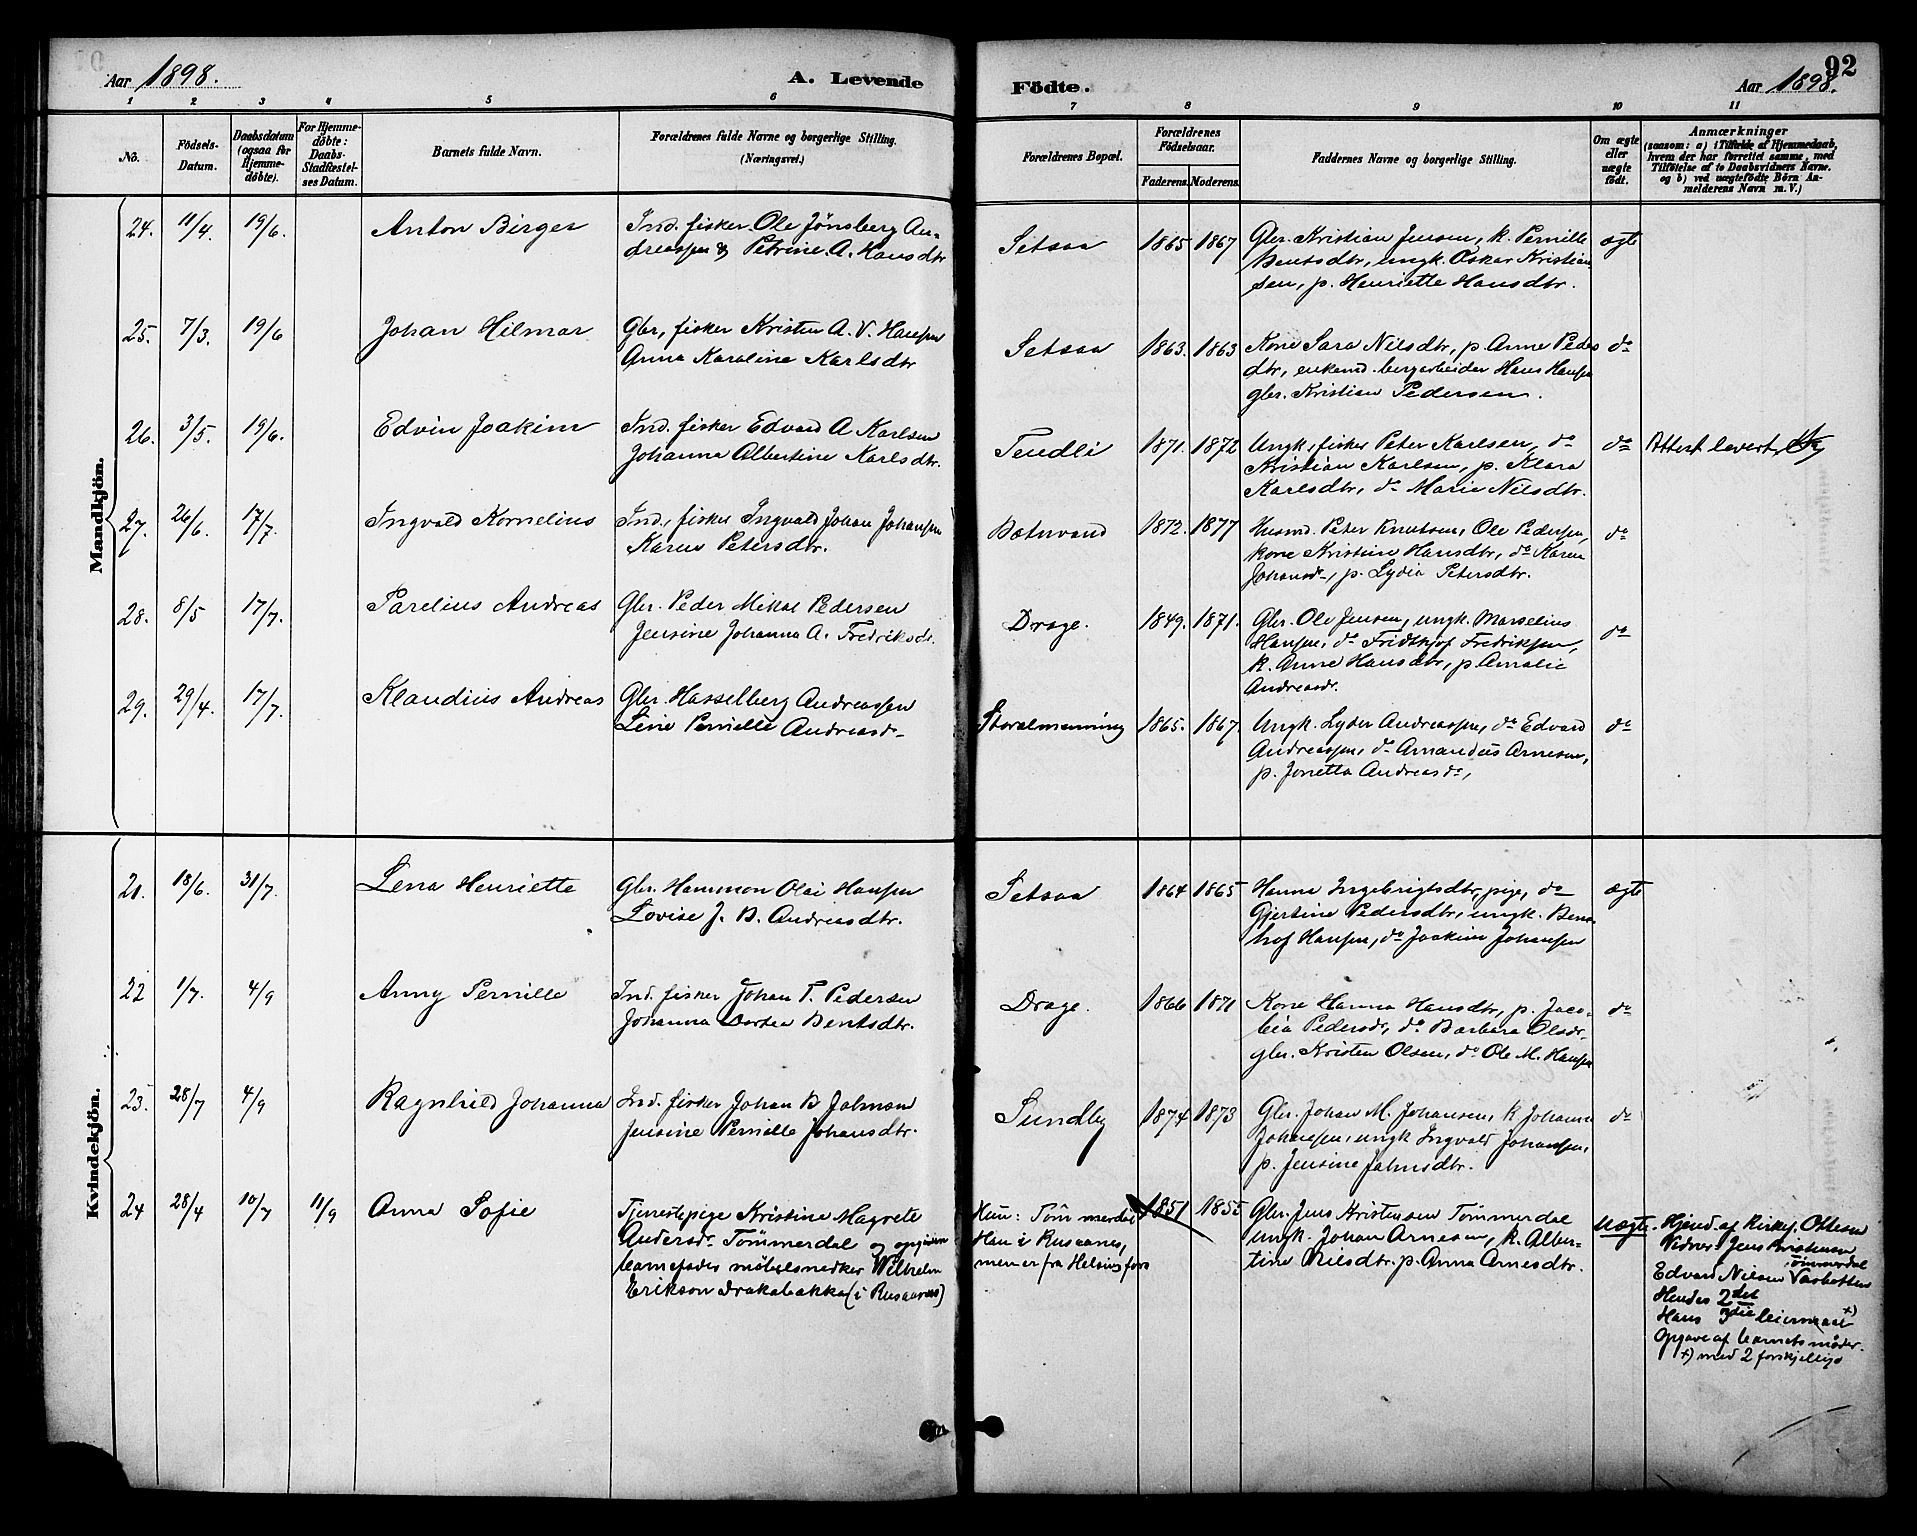 Aar 1898. A. Levende Födte. Aar 1898. 92
1 2 3 4 5 6 7 8 9 10 11
No. Födsels-Datum. Daabsdatum (ogsaa for Hjemmedøbte). For Hjemmedøbte: Daabs-Stadfæstelses Datum. Barnets fulde Navn. Forældrenes fulde Navne og borgerlige Stilling. (Næringsvei.) Forældrenes Bopæl. Forældrenes Födselsaar. Faderens. Moderens. Faddernes Navne og borgerlige Stilling. Om ægte eller uægte født. Anmærkninger
(saasom: a) i Tilfælde af Hjemmedaab, hvem der har forrettet samme, med Tilföielse af to Daabsvidners Navne. og b) ved uægtefødte Börn Anmelderens Navn m. V.)
Mandkjön.
24. 11/4. 19/6. Anton Birger Ind. fisker Ole Jönsberg An-
dreassen & Petrine A. Hansdtr
Setsaa 1865 1867 Gbr. Kristian Jensen, k. Pernille
Bentsdtr, ungk. Oskar Kristian
sen, p. Henriette Hansdtr.
ægte
25. 7/3. 19/6 Johan Hilmar Gbr, fisker Kristen A. V. Hansen
Anna Karoline Karlsdtr
Setsaa 1863. 1863 Kone Sara Nilsdtr, p. Anne Peders
dtr, enkemd. bergarbeider Hans Hansen
gbr. Kristian Pedersen.
do
26. 3/5. 19/6. Edvin Joakim Ind. fisker Edvard A Karlsen
Johanna Albertine Karlsdtr.
Tendli 1871. 1872 Ungk, fisker Peter Karlsen, do
Kristian Karlsen, p. Klara
Karlsdtr, do Marie Nilsdtr.
do Attest levert
27. 26/6. 17/7. Ingvald Kornelius Ind., fisker Ingvald Johan Johansen
Karen Petersdtr.
Bætnvand 1872. 1877 Husmd. Peter Knutsen, Ole Pedersen,
kone Kristine Hansdtr, do Karen
Johansd, p. Lydia Petersdtr.
do
28. 8/5 17/7. Parelius Andreas Gbr. Peder Mikal Pedersen
Jensine Johanna A. Fredriksdr.
Drage. 1849. 1871. Gbr. Ole Jensen, ungk. Marselius
Hansen, do Fridthjof Fredriksen,
k. Anne Hansdtr, p. Amalie
Andreasdr.
do
29. 29/4. 17/7. Klaudius Andreas Gbr. Hasselberg Andreassen
Line Pernille Andreasd
Storalmenning 1865. 1867. Ungk. Lyder Andreassen, do Edvard
Andreassen, do Amandus Arnesen,
p. Jonetta Andreasd,
do
Kvindekjön.
21. 18/6. 31/7. Lena Henriette Gbr. Hammon Olai Hansen
Lovise J. B. Andreasdtr.
Setsaa 1864 1865 Hanna Ingebrigtsdtr, pige, do
Gjertine Pedersdtr, ungk. Bern-
hof Hansen, do Joakim Johansen
ægte
22 1/7. 4/9 Anny Pernille Ind. fisker Johan T. Pedersen
Johanna Dortea Bentsdtr.
Drage. 1866 1871 Kone Hanna Hansdtr, p. Jaco-
bia Pedersdr, do Barbara Olsdr
gbr. Kristen Olsen, do Ole M. Hansen
do
23. 28/7 4/9 Ragnhild Johanna Ind. fisker Johan B Jalmsen
Jensine Pernille Johansdtr.
Sundby 1874 1873 Gbr. Johan M. Johansen, k Johanna
Johansen, ungk Ingvald Johansen,
p. Jensine Jalmsdtr.
do
24 28/4 10/7 11/9 Anna Sofie Tjenestepige Kristine Magrete
Andersd. Tömmerdal og opgiven
barnefader møbelsnedker Wilhelm
Erikson Drakabakka (i Rusaanes)
Hun: Tömmerdal
Han i Rusaanes,
men er fra Helsingfors
1851 1855 Gbr. Jens Kristensen Tömmerdal
ungk. Johan Arnesen, k. Alber-
tine Nilsdtr. p. Anna Arnesdtr.
Uægte. Hjemd. af Kirkes. Ottesen
Vidner: Jens Kristensen
Tömmerdal
Edvard Nilsen
Hendes 2det
Hans 3die leiermaal x)
Opgave af barnets moder.
x) med 2 forskjellige